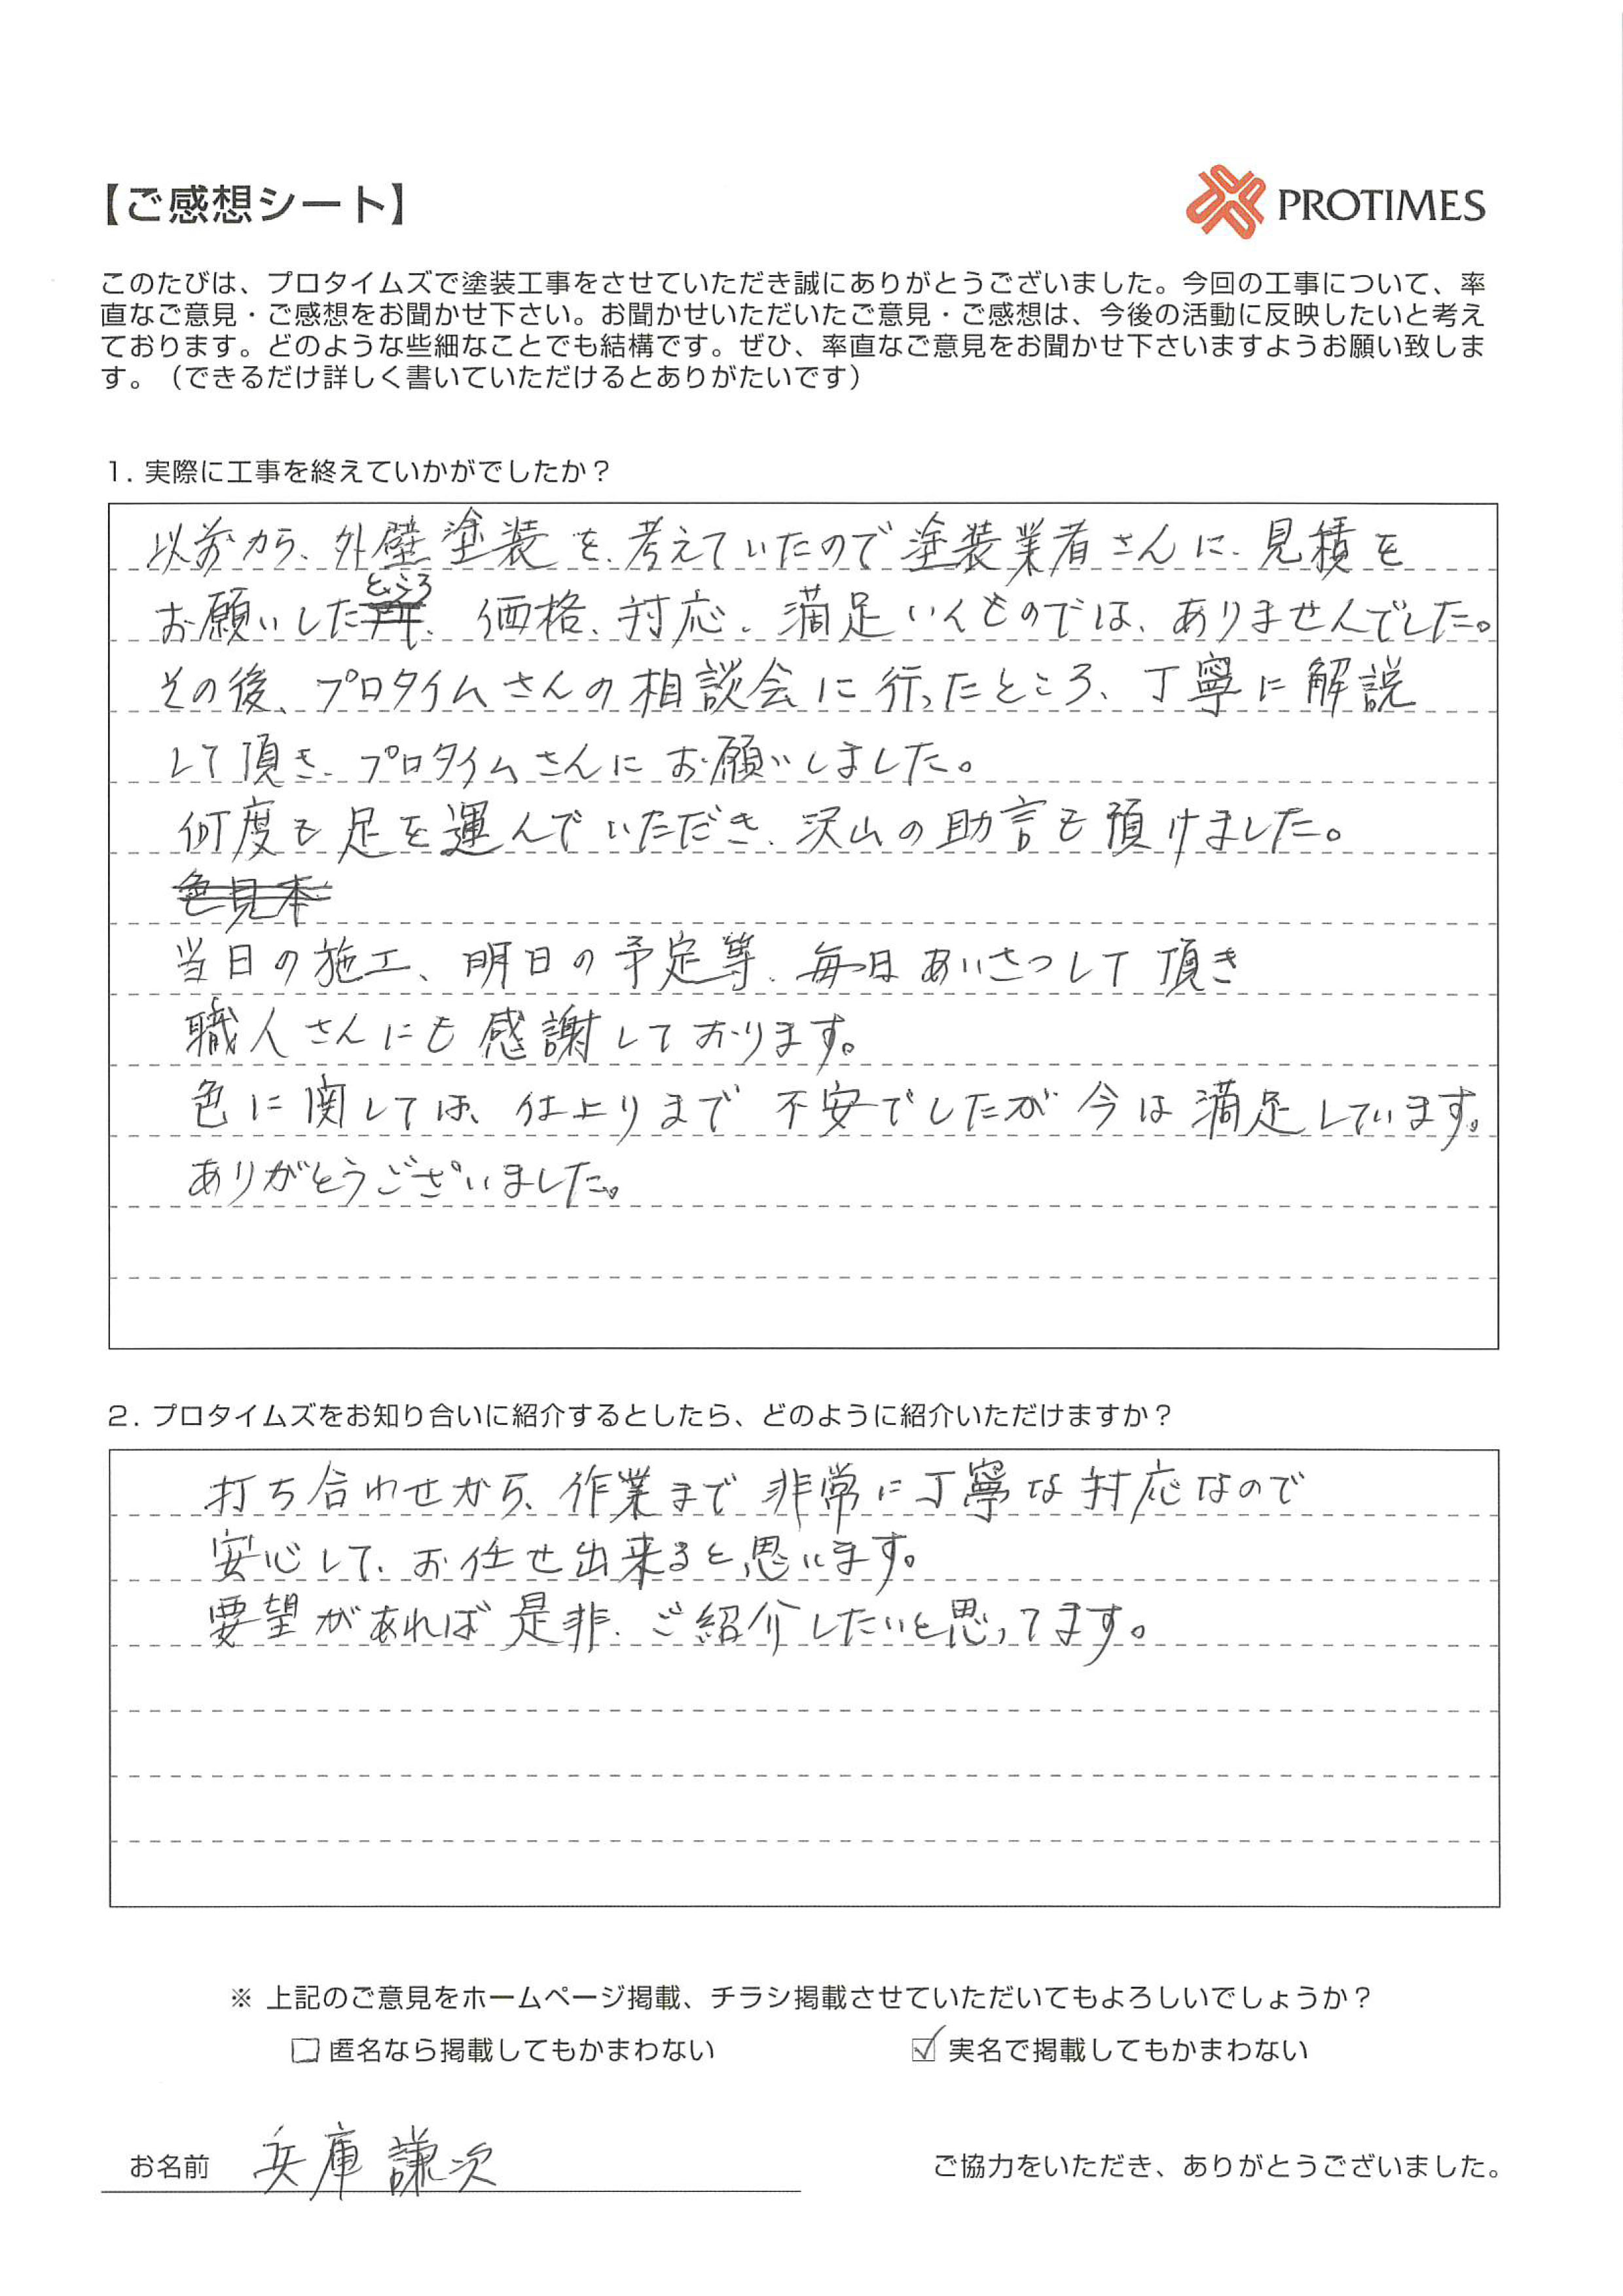 【ご感想シート】
PROTIMES
このたびは、プロタイムズで塗装工事をさせていただき誠にありがとうございました。今回の工事について、率
直なご意見・ご感想をお聞かせ下さい。お聞かせいただいたご意見・ご感想は、今後の活動に反映したいと考え
ております。どのような些細なことでも結構です。ぜひ、率直なご意見をお聞かせ下さいますようお願い致しま
す。（できるだけ詳しく書いていただけるとありがたいです）
1. 実際に工事を終えていかがでしたか？
以前から、外壁塗装を、考えていたので塗装業者さんに、見積を
お願いしたところ、価格、対応、満足いくものでは、ありませんでした。
その後、プロタイムさんの相談会に行ったところ、丁寧に解説
して頂き、プロタイムさんにお願いしました。
何度も足を運んでいただき、沢山の助言も頂けました。
色見本
当日の施工、明日の予定等、毎日あいさつして頂き
職人さんにも感謝しております。
色に関しては、仕上りまで不安でしたが今は満足しています。
ありがとうございました。
2. プロタイムズをお知り合いに紹介するとしたら、どのように紹介いただけますか？
打ち合わせから、作業まで非常に丁寧な対応なので
安心して、お任せ出来ると思います。
要望があれば是非、ご紹介したいと思ってます。
※ 上記のご意見をホームページ掲載、チラシ掲載させていただいてもよろしいでしょうか？
□ 匿名なら掲載してもかまわない ☑ 実名で掲載してもかまわない
お名前 兵庫謙次 ご協力をいただき、ありがとうございました。